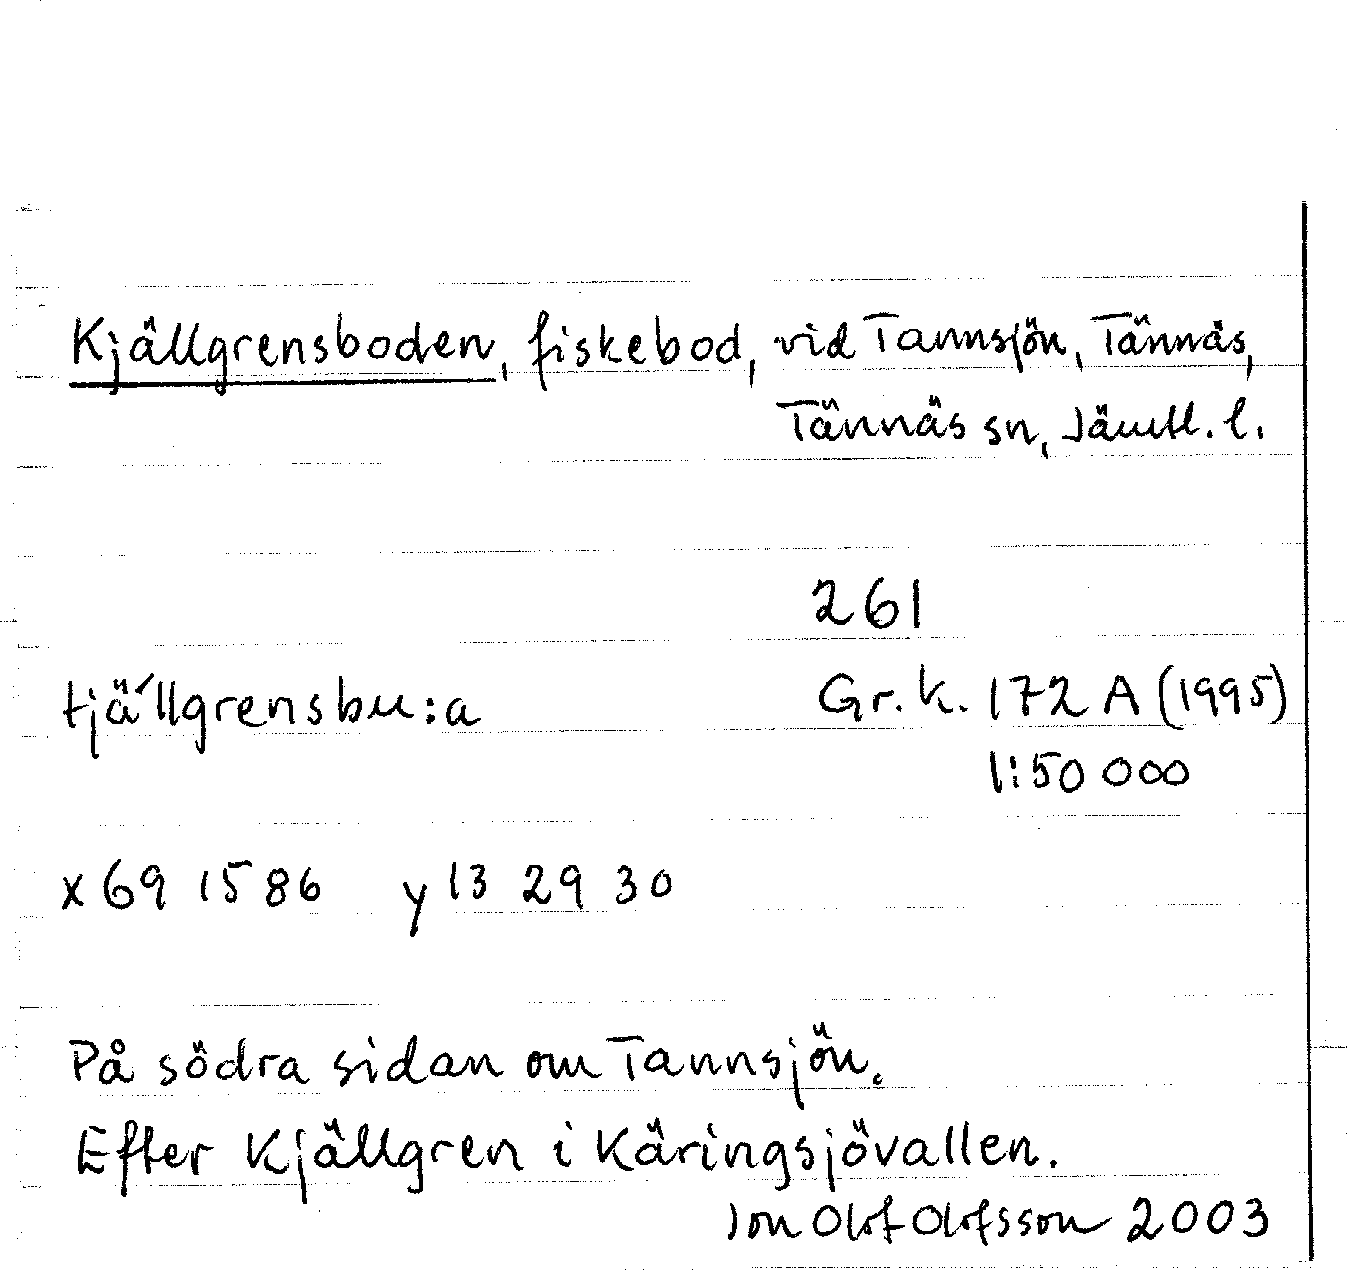 Kjällgrensboden, fiskebod, vid Tannsjön, Tännäs,
Tännäs sn, Jämtl. l.
261
tjä́llgrensbu:a
Gr. k. 172 A (1995)
1:50 000
x 69 15 86 y 13 29 30
På södra sidan om Tannsjön.
Efter Kjällgren i Käringsjövallen.
Jon Olof Olofsson 2003